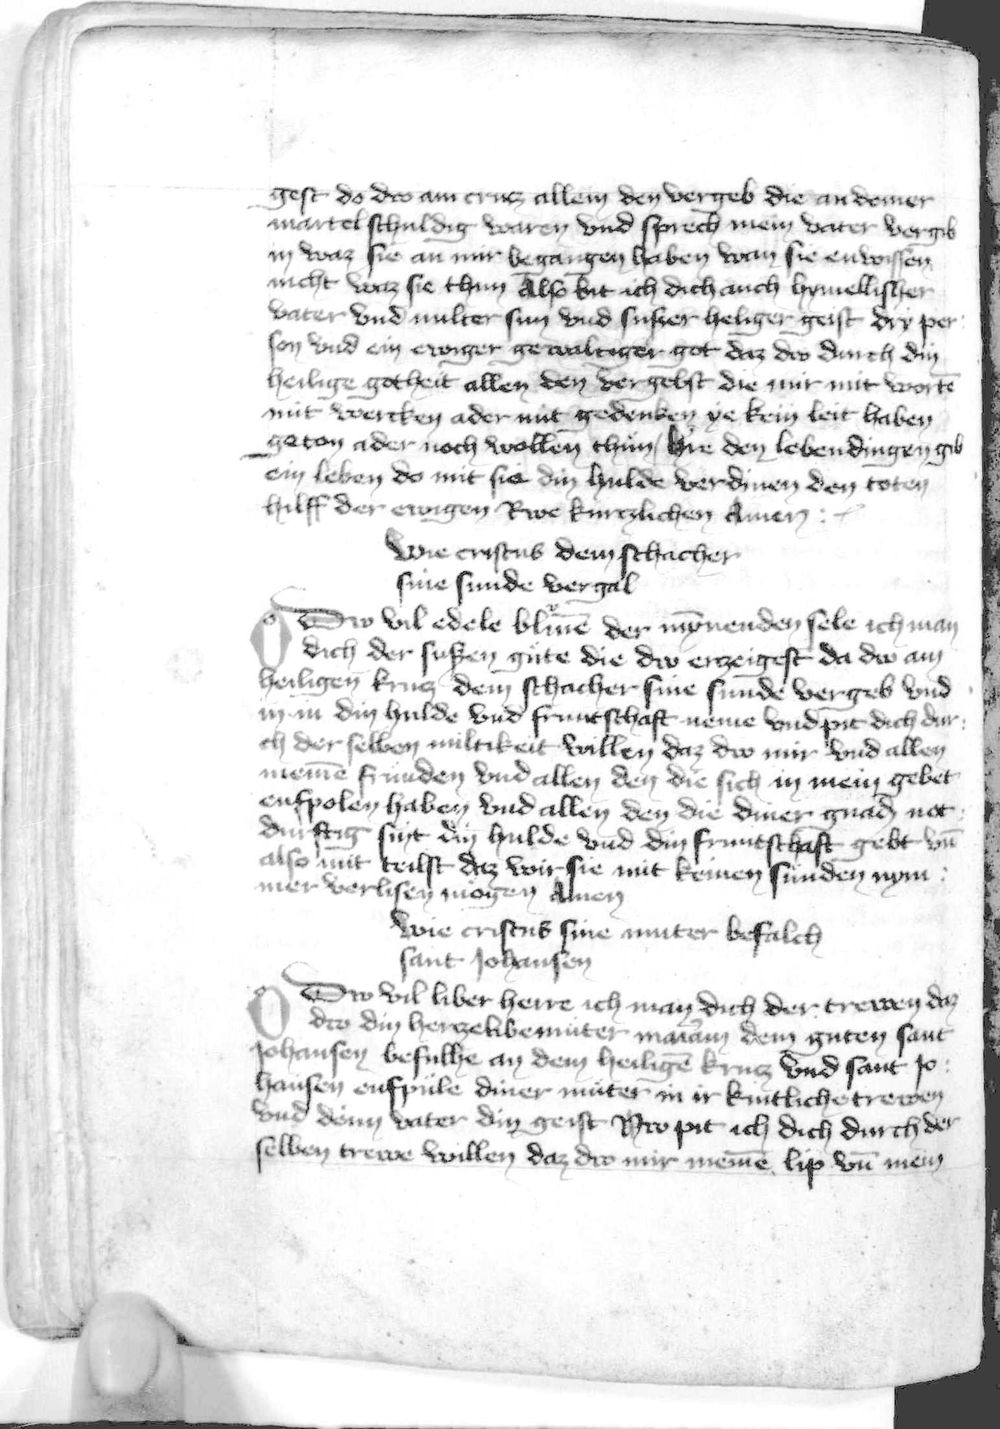 gest do dw am crucz allein den vergeb die an deiner
martel schuldig waren vnd sprech mein vater vergib
in waz sie an mir begangen haben wan sie enwissen
nicht waz sie thun Also bit ich dich auch hymellischer
vater vnd milter sun vnd susser heliger geist dry per
son vnd ein ewiger gewaltiger got daz dw durch din
heilige gotheit allen den vergebst die mir mit wortē
mit wercken ader mit gedencken ye kein leit haben
geton ader noch wollen thun hie den lebendingen gib
ein leben do mit sie din hulde verdinen den toten
hilff der ewigen Rwe kurczlichen Amen :
Wie cristus dem schacher
sine sunde vergab
O Dw vil edele blumē der mynenden sele ich man
dich der sussen gute die dw erzeigest da dw am
heiligen krucz dem schacher sine sunde vergeb vnd
in in din hulde vnd fruntschaft neme vnd pit dich dur :
ch der selben miltikeit willen daz dw mir vnd allen
meinē frunden vnd allen den die sich in mein gebet
enfpolen haben vnd allen den die diner gnad not :
durftig sint din hulde vnd din fruntschaft gebt vn̄
also mit teilst daz wir sie mit keinen sunden nym :
mer verlisen mogen Amen
Wie cristus sine muter befalch
sant Johansen
O Dw vil liber herre ich man dich der trewen daz
dw din herczelibe muter mariam dem guten sant
Johansen befulhe an dem heiligē krucz vnd sant Jo :
hansen enfpule diner muter in ir kintliche trewen
vnd deim vater din geist Nw pit ich dich durch der
selben trewe willen daz dw mir meinē lip vn̄ mein